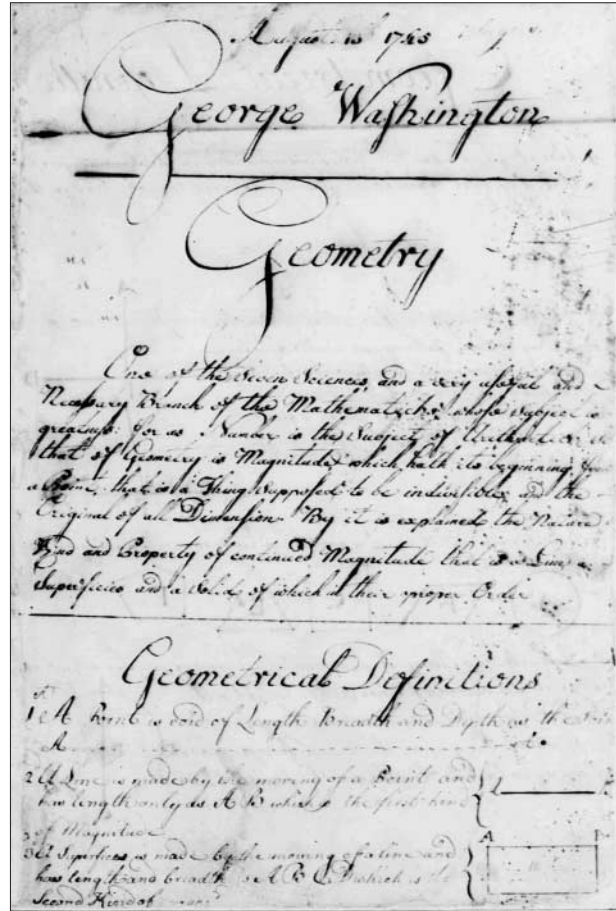 August 13 1745
George Washington
Geometry
One of the Seven Sciences, and a very useful and
Necessary Branch of the Mathematicks, whose Subject is
greatness: for as Number is the Subject of Arithmetick, so
that of Geometry is Magnitude which hath its beginning from
a Point, that is a Thing supposed to be indivisible, and the
Original of all Dimension By it is explained the Nature
Kind and Property of continued Magnitude that is a Line a
Superficies and a Solid of which in their proper Order
Geometrical Definitions
1st A Point is void of Length Breadth and Depth as the
A
2 A Line is made by the moving of a Point and
has length only as A B which is the first kind
of Magnitude
3 A Superficies is made by the moving of a line and
has length and breadth as A B C D which is the
Second Kind of
A B